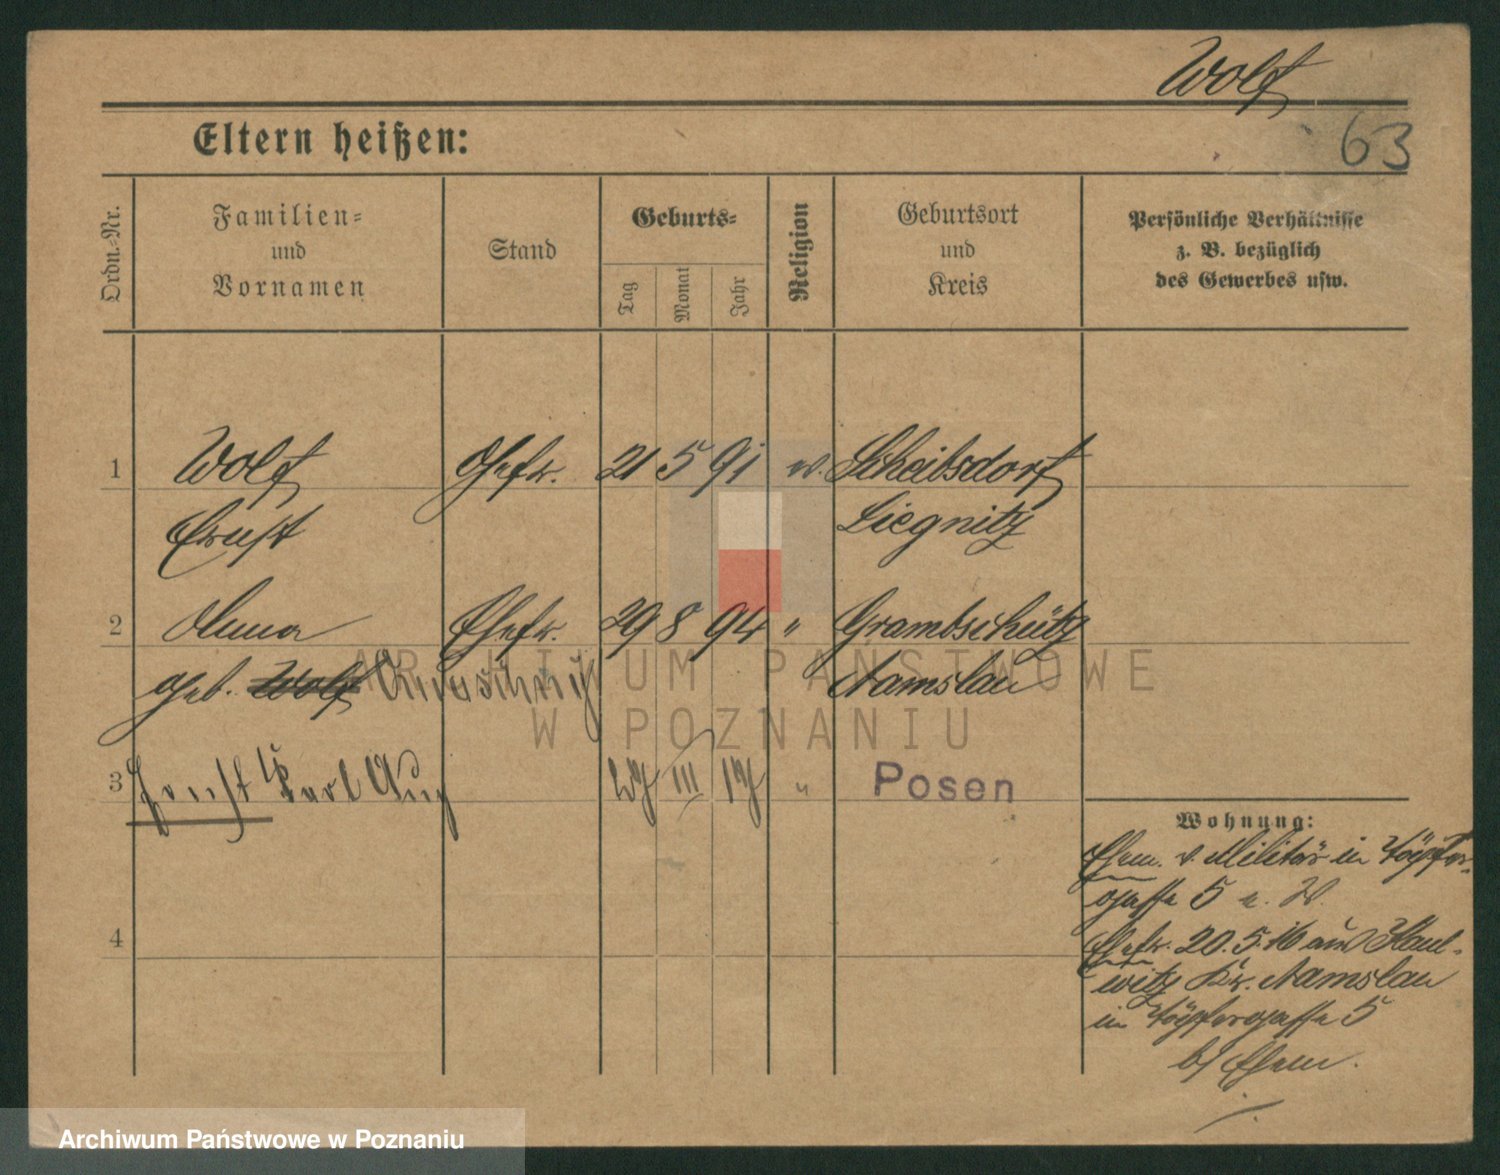 Wolf
63
Eltern heißen:
Ordn.-Nr.
Familien-
und
Vornamen
Stand
Geburts-
Tag
Monat
Jahr
Religion
Geburtsort
und
Kreis
Persönliche Verhältnisse
z. B. bezüglich
des Gewerbes usw.
1 Wolf Gefr. 21 5 91 ev. Scheibsdorf
Ernst Liegnitz
2 Anna Ehefr. 29 8 94 " Grambschütz
geb. Wolf Namslau
3 Ernst Karl Aug III 17 " Posen
4
Wohnung:
Ehem. v. Militär in Töpfer-
gasse 5 z. W.
Ehefr. 20.5.16 aus Kaul-
witz Kr. Namslau
in Töpfergasse 5
b/ Ehem.
ARCHIWUM PAŃSTWOWE
W POZNANIU
Archiwum Państwowe w Poznaniu